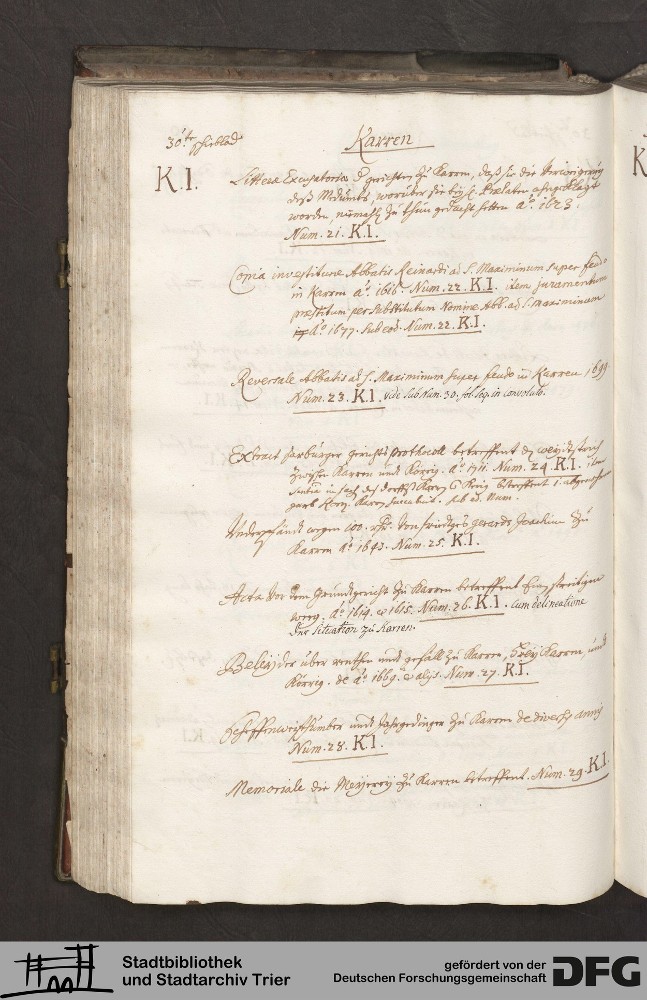 30te schieblad
Karren
K.I.
Litterae Excusatoriae gerichten zu Karren, daß sie die
deß worüber sie Praelaten angeklagt
worden, niemahl zu thun gedacht hetten aº 1623.
Num. 21. K.I.
Copia investiturae Abbatis Reinardi ad S. Maximinum super feudo
in Karren aº 1616. Num. 22. K.I. item juramentum
praestitum per substitutum Nomine Abb. ad S. Maximinum
Aº 1677. sub eod. Num. 22. K.I.
Reversale Abbatis ad S. Maximinum super feudo in Karren 1699
Num. 23. K.I. vide sub Num. 30. fol. seq. in convoluto.
Extract sarburger gerichts prothocoll betreffent den weydtstrich
zwischen Karren und Körrig. aº 1711. Num. 24. K.I. item
in sach deß dorffs betreffent
sub ed. Num.
Underpfändt wegen 100. von gerards Joachim zu
Karren Aº 1693. Num. 25. K.I.
Acta vor dem grundtgericht zu Karren betreffent Ein streitigen
weeg. Aº 1614. et 1615. Num. 26. K.I. cum delineatione
Der situation zu Karren.
Beleyder über renthen und gefäll zu Karren, Karren, und
Körrig. de Aº 1669. et alys. Num. 27. K.I.
Scheffenweißthumber undt Jahrgedinger zu Karren de diversis annis
Num. 28. K.I.
Memoriale die Meyerey zu Karren betreffent. Num. 29. K.I.
K
Stadtbibliothek
und Stadtarchiv Trier
gefördert von der
Deutschen Forschungsgemeinschaft
DFG